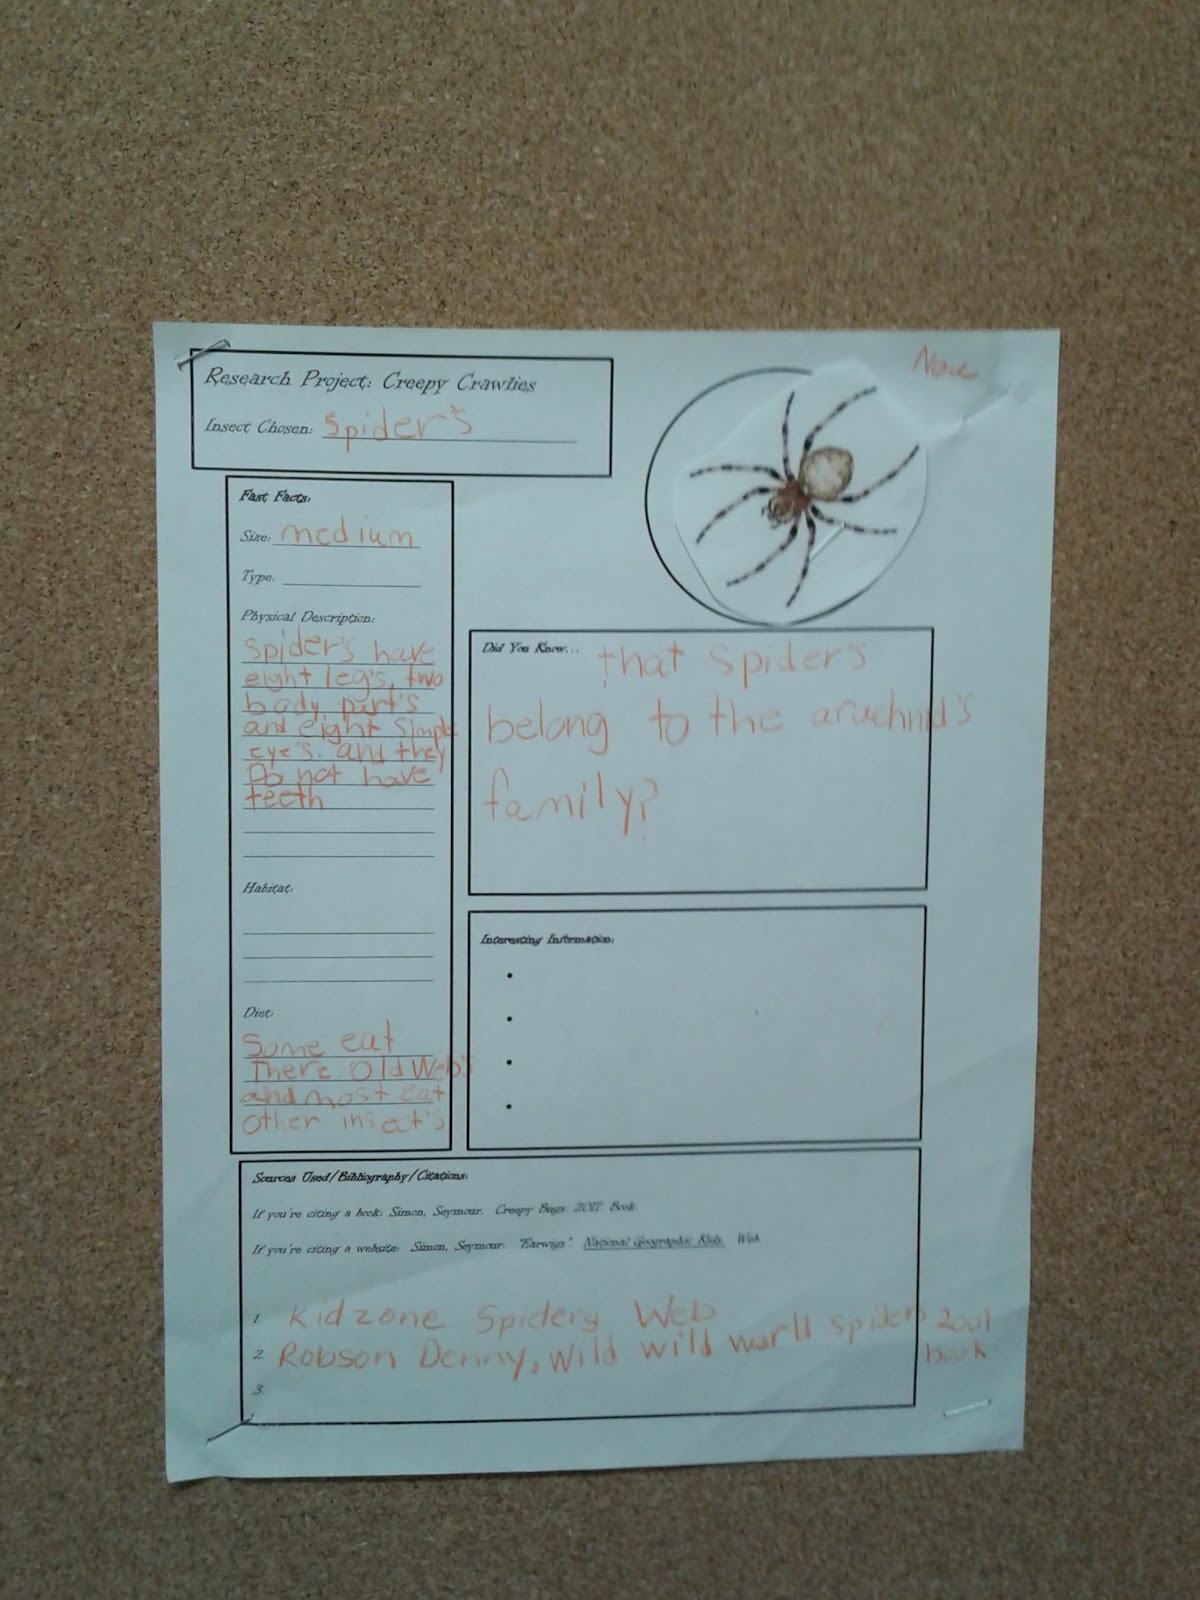 Noe
Research Project: Creepy Crawlies
Insect Chosen: Spider's
Fast Facts:
Size: medium
Type:
Physical Description:
Spider's have
eight leg's, two
body part's
and eight simple
eye's. and they
Do not have
teeth
Habitat:
Diet:
Some eat
There Old Web's
and most eat
other insect's
Did You Know... that Spider's
belong to the arachnid's
family?
Interesting Information:
Sources Used/Bibliography/Citations:
If you're citing a book: Simon, Seymour. Creepy Bugs. 2017. Book.
If you're citing a website: Simon, Seymour. "Earwigs". National Geographic Kids. Web
1. Kidzone Spidery Web
2. Robson Denny, Wild wild warll spiders 2001
book
3.